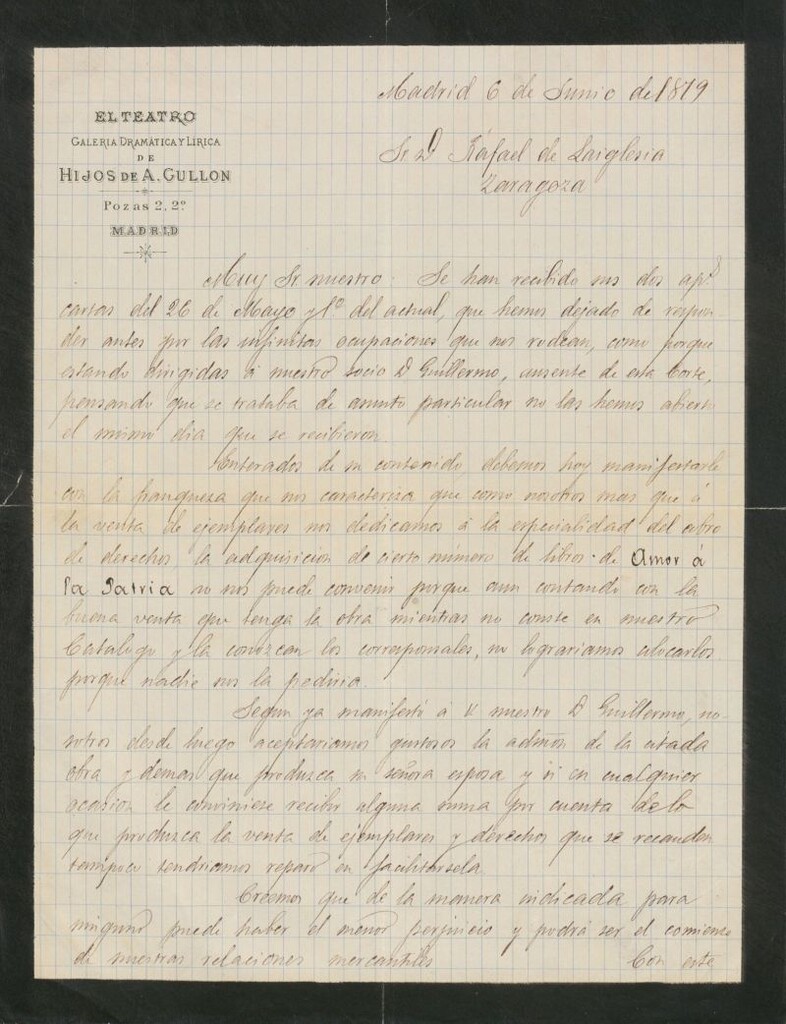 Madrid 6 de Junio de 1879
EL TEATRO
GALERIA DRAMÁTICA Y LÍRICA
DE
HIJOS DE A. GULLON
Pozas 2, 2º
MADRID
Sr. D Ráfael de Laiglesia
Zaragoza
Muy Sr. nuestro: Se han recibido sus dos ap.s
cartas del 26 de Mayo y 1º del actual, que hemos dejado de respon-
der antes por las infinitas ocupaciones que nos rodean, como porque
estando dirigidas á nuestro socio D Guillermo, ausente de esta Corte,
pensando que se trataba de asunto particular no las hemos abierto
el mismo dia que se recibieron.
Enterados de su contenido, debemos hoy manifestarle
con la franqueza que nos caracteriza que como nosotros mas que á
la venta de ejemplares nos dedicamos á la especialidad del cobro
de derechos la adquisicion de cierto número de libros de Amor á
la Patria no nos puede convenir porque aun contando con la
buena venta que tenga la obra mientras no conste en nuestro
Catalogo y la conozcan los corresponsales, no lograriamos colocarlos
porque nadie nos la pediria.
Segun ya manifestó á V nuestro D Guillermo, no-
sotros desde luego aceptariamos gustosos la admon de la citada
obra y demas que produzca su señora esposa y si en cualquier
ocasion le conviniese recibir alguna suma por cuenta de lo
que produzca la venta de ejemplares y derechos que se recauden
tampoco tendriamos reparo en facilitarsela.
Creemos que de la manera indicada para
ninguno puede haber el menor perjuicio y podrá ser el comienzo
de nuestras relaciones mercantiles Con este